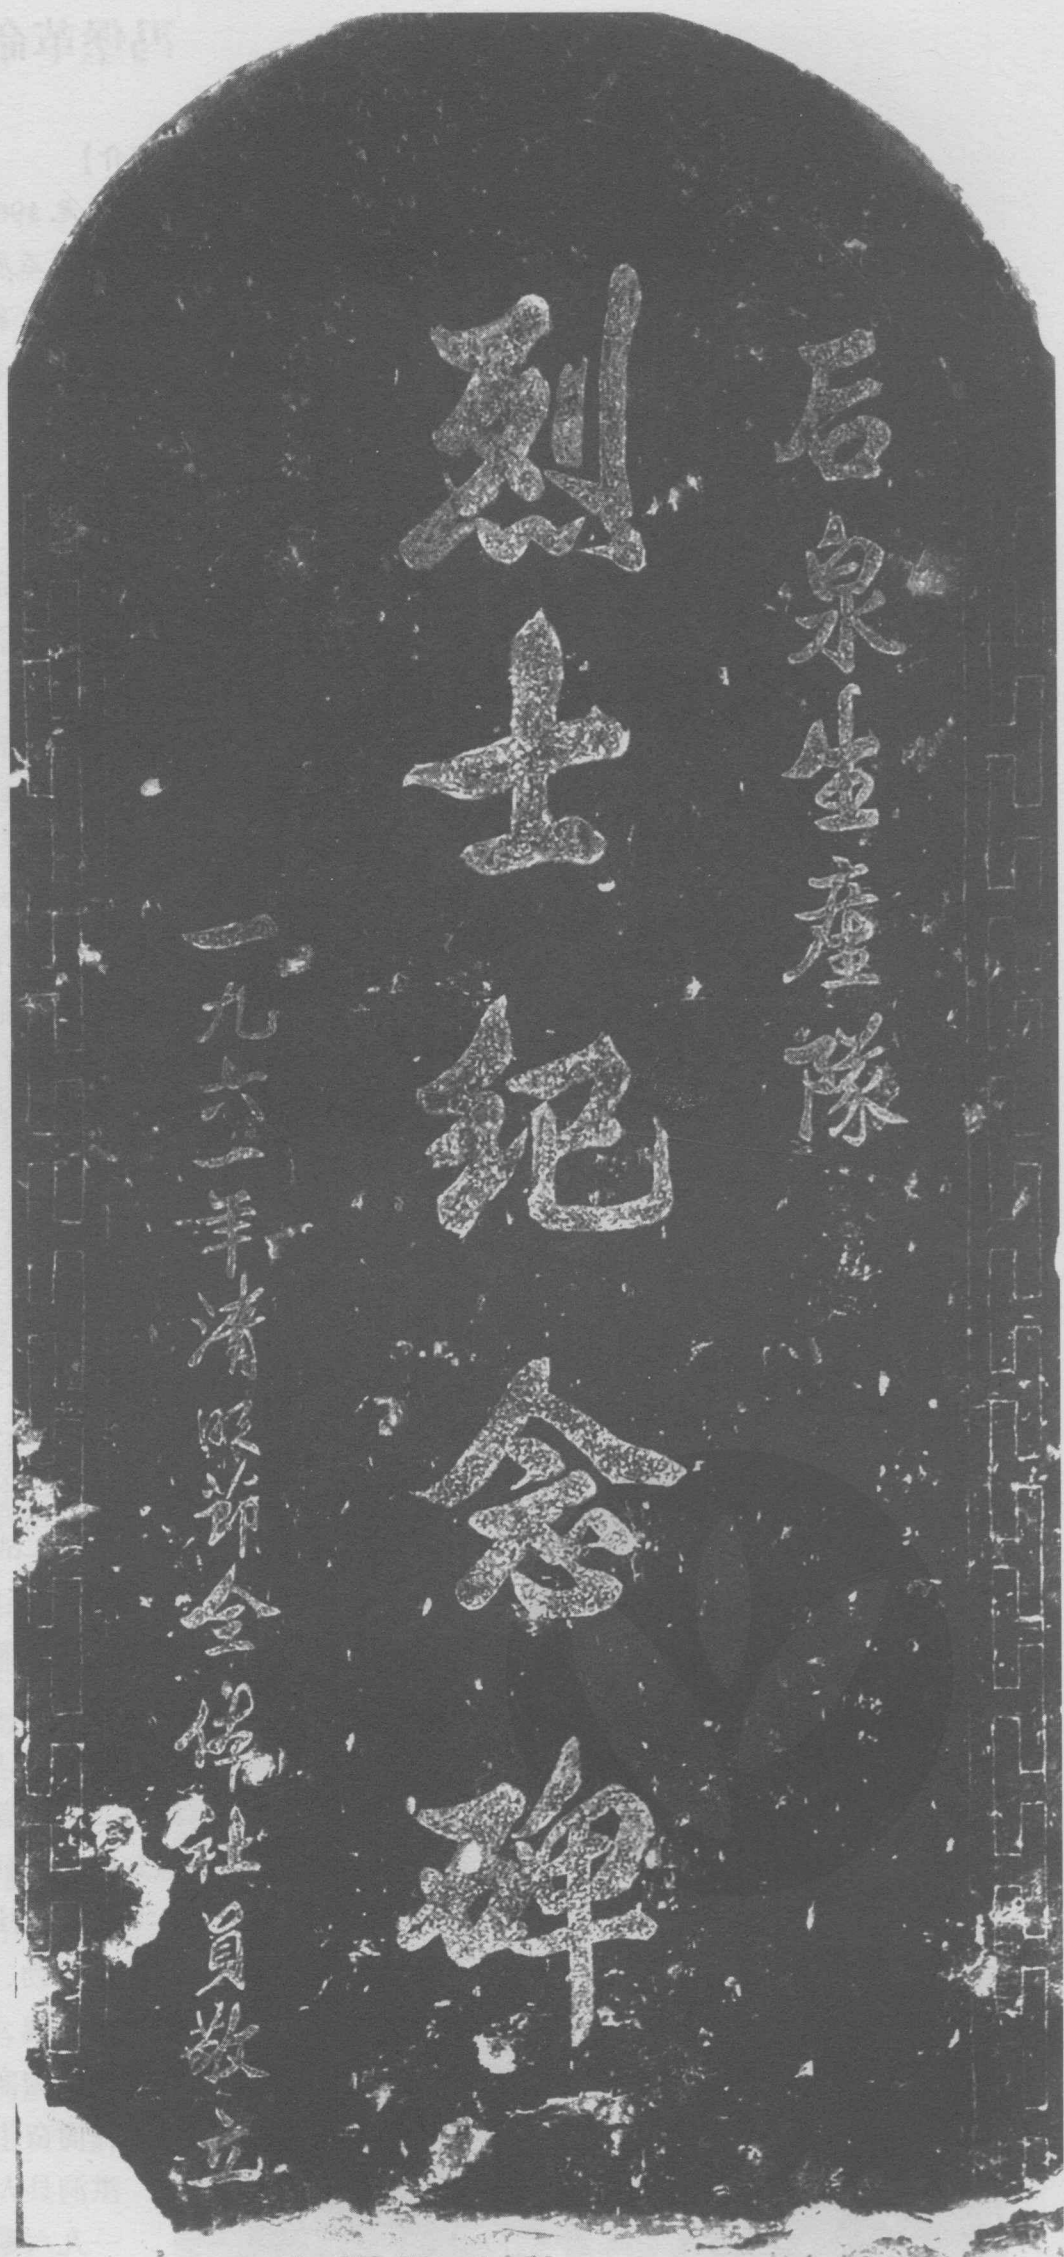 后泉生產隊
烈士纪念碑
一九六一年清明節全体社員敬立